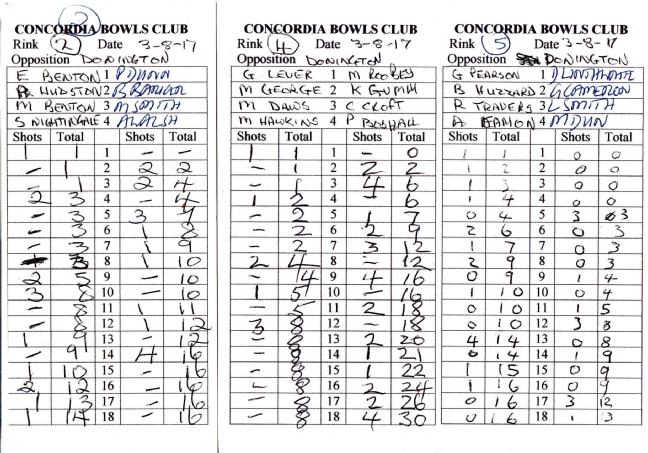 2
CONCORDIA BOWLS CLUB
Rink 2 Date 3-8-17
Opposition DONINGTON
E BENTON 1 P DUNN
HUDSTON 2 B
M BENTON 3 M SMITH
S NIGHTINGALE 4 A WALSH
Shots Total Shots Total
1 1 1 - -
- 1 2 2 2
- 1 3 2 4
2 3 4 - 4
- 3 5 3
- 3 6 1 8
- 3 7 1 9
3 8 1 10
2 5 9 - 10
3 8 10 - 10
- 8 11 1 11
- 8 12 1 12
1 9 13 - 12
- 9 14 4 16
1 10 15 - 16
2 12 16 - 16
1 13 17 - 16
1 14 18 - 16
CONCORDIA BOWLS CLUB
Rink 4 Date 3-8-17
Opposition DONINGTON
G LEVER 1 M
M GEORGE 2 K
M DAWS 3 C CROFT
M HAWKINS 4 P
Shots Total Shots Total
1 1 1 - 0
- 1 2 2 2
- 1 3 4 6
1 2 4 - 6
- 2 5 1 7
- 2 6 2 9
- 2 7 3 12
2 4 8 - 12
- 4 9 4 16
1 5 10 - 16
- 5 11 2 18
3 8 12 - 18
- 8 13 2 20
- 8 14 1 21
- 8 15 1 22
- 8 16 2 24
- 8 17 2 26
- 8 18 4 30
CONCORDIA BOWLS CLUB
Rink 5 Date 3-8-17
Opposition DONINGTON
G PEARSON 1 D
B HUZZARD 2 G CAMERON
R TRAVERS 3 L SMITH
A EAMON 4 M DUNN
Shots Total Shots Total
1 1 1 0 0
1 2 2 0 0
1 3 3 0 0
1 4 4 0 0
0 4 5 3 3
2 6 6 0 3
1 7 7 0 3
2 9 8 0 3
0 9 9 1 4
1 10 10 0 4
0 10 11 1 5
0 10 12 3 8
4 14 13 0 8
0 14 14 1 9
1 15 15 0 9
1 16 16 0 9
0 16 17 3 12
0 16 18 1 3